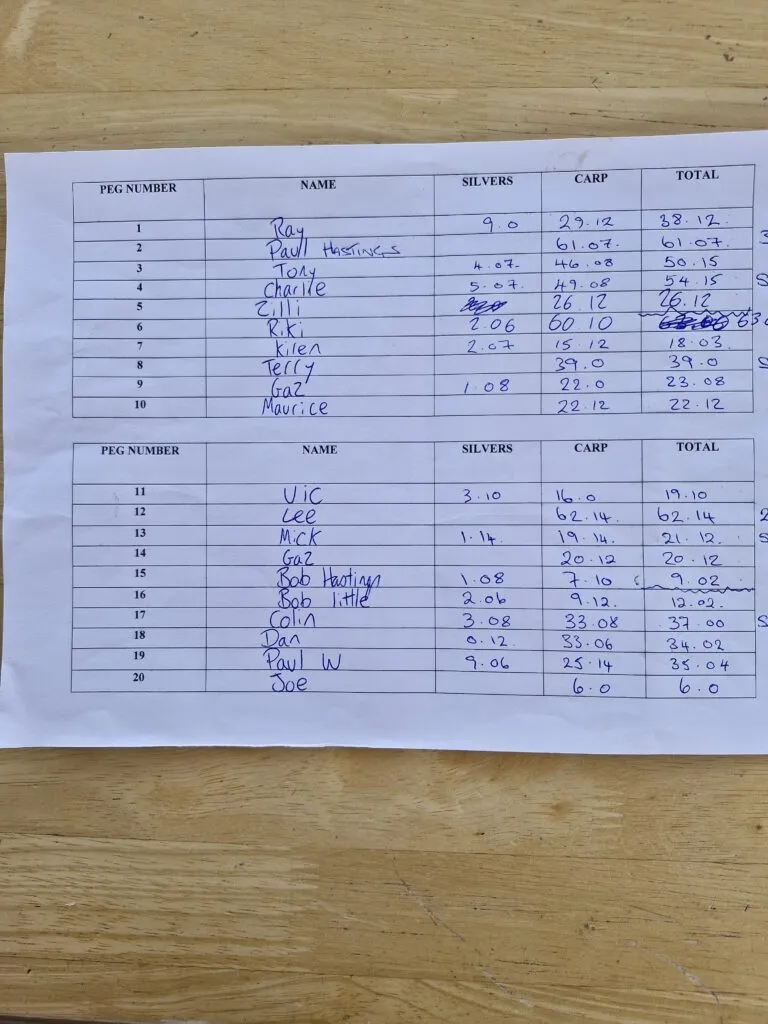 PEG NUMBER NAME SILVERS CARP TOTAL
1 Ray 9.0 29.12 38.12.
2 Paul HASTINGS 61.07. 61.07.
3 Tony 4.07- 46.08 50.15
4 Charlie 5.07. 49.08 54.15
5 Zilli 26 12 26.12
6 Riki 2.06 60 10
7 Kilen 2.07 15.12 18.03.
8 Terry 39.0 39.0
9 Gaz 1.08 22.0 23.08
10 Maurice 22.12 22.12
PEG NUMBER NAME SILVERS CARP TOTAL
11 Vic 3.10 16.0 19.10
12 Lee 62.14. 62.14
13 Mick 1.14. 19.14. 21.12.
14 Gaz 20.12 20.12
15 Bob Hastings 1.08 7.10 9.02
16 Bob little 2.06 9.12. 12.02.
17 Colin 3.08 33.08 37.00
18 Dan 0.12. 33.06 34.02
19 Paul W 9.06 25.14 35.04
20 Joe 6.0 6.0